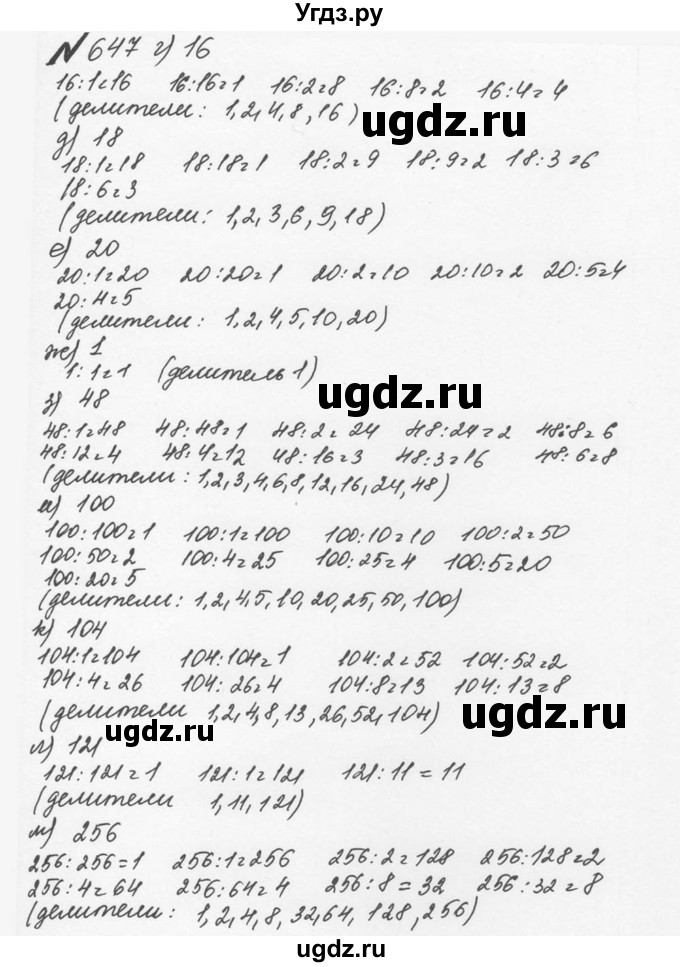 Угдз.ру
№ 647 г) 16
16:1=16 16:16=1 16:2=8 16:8=2 16:4=4
(делители: 1,2,4,8,16)
ugdz.ru
д) 18
18:1=18 18:18=1 18:2=9 18:9=2 18:3=6
18:6=3
(делители: 1,2,3,6,9,18)
е) 20
20:1=20 20:20=1 20:2=10 20:10=2 20:5=4
20:4=5
(делители: 1,2,4,5,10,20)
ж) 1
1:1=1 (делитель 1)
ugdz.ru
з) 48
48:1=48 48:48=1 48:2=24 48:24=2 48:8=6
48:12=4 48:4=12 48:16=3 48:3=16 48:6=8
(делители: 1,2,3,4,6,8,12,16,24,48)
и) 100
100:100=1 100:1=100 100:10=10 100:2=50
100:50=2 100:4=25 100:25=4 100:5=20
100:20=5
(делители: 1,2,4,5,10,20,25,50,100)
к) 104
104:1=104 104:104=1 104:2=52 104:52=2
104:4=26 104:26=4 104:8=13 104:13=8
(делители 1,2,4,8,13,26,52,104)
ugdz.ru
ugdz.ru
л) 121
121:121=1 121:1=121 121:11=11
(делители 1,11,121)
м) 256
256:256=1 256:1=256 256:2=128 256:128=2
256:4=64 256:64=4 256:8=32 256:32=8
(делители: 1,2,4,8,32,64,128,256)
ugdz.ru